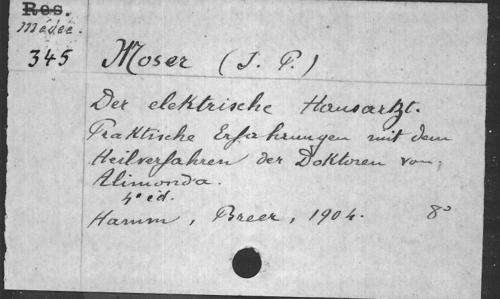 Res.
Médec.
345 Moser (J. P.)
Der elektrische Hausartzt.
Praktische Erfahrungen mit dem
Heilverfahren der Doktoren von
Alimonda.
4e ed.
Hamm, Breer, 1904. 8°